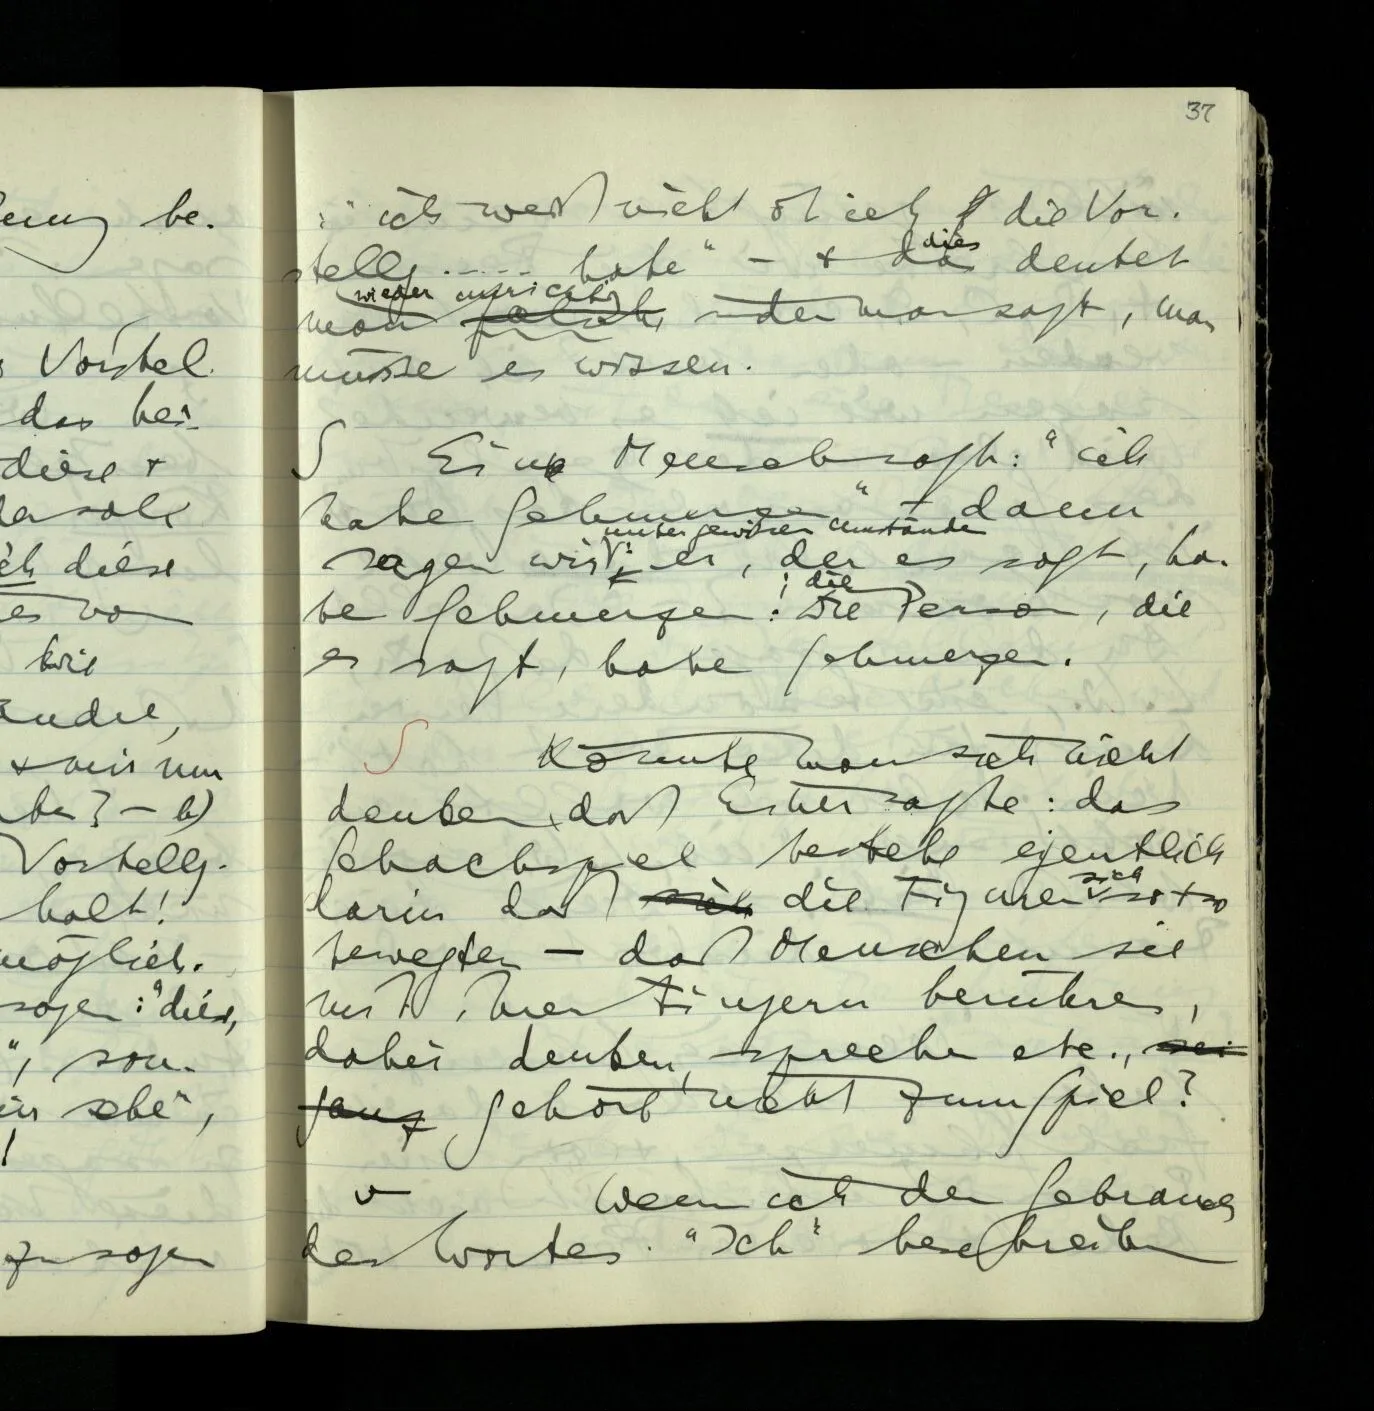 37
lung be-
s Vorstel-
das bei-
diese +
dasole
ich diese
es von
wie
andre,
+ wir nun
ber? – b)
Vorstellg.
halt!
möglich.
sagen: "dies,
", son-
in sehe",
!
zu sagen
: "ich weiß nicht ob ich die Vor-
stellg ..... habe" – + das dies deutet
wieder unrichtig
man falsch indem man sagt, man
müsse es wissen.
S Eine Mensch sagt: "ich
habe Schmerzen" – dann
unter gewissen Umständen
sagen wir: er, der es sagt, ha-
die
be Schmerzen: Die Person, die
es sagt, habe Schmerzen.
S Könnte man sich nicht
denken, daß Einer sagte: das
Schachspiel bestehe eigentlich
sich
darin daß sich die Figuren so + so
bewegten – daß Menschen sie
mit ihren Fingern berühren,
dabei denken, sprechen etc., sei
ganz gehört nicht zum Spiel?
v Wenn ich den Gebrauch
des Wortes "Ich" beschreiben